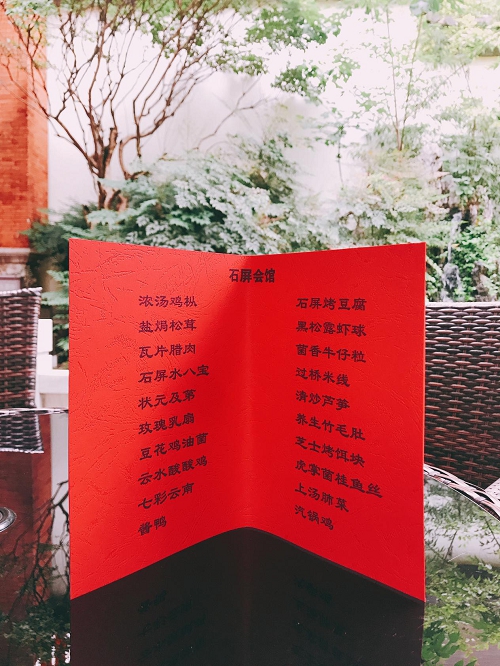 石屏会馆
浓汤鸡枞
盐焗松茸
瓦片腊肉
石屏水八宝
状元及第
玫瑰乳扇
豆花鸡油菌
云水酸酸鸡
七彩云南
酱鸭
石屏烤豆腐
黑松露虾球
菌香牛仔粒
过桥米线
清炒芦笋
养生竹毛肚
芝士烤饵块
虎掌菌桂鱼丝
上汤肺菜
汽锅鸡